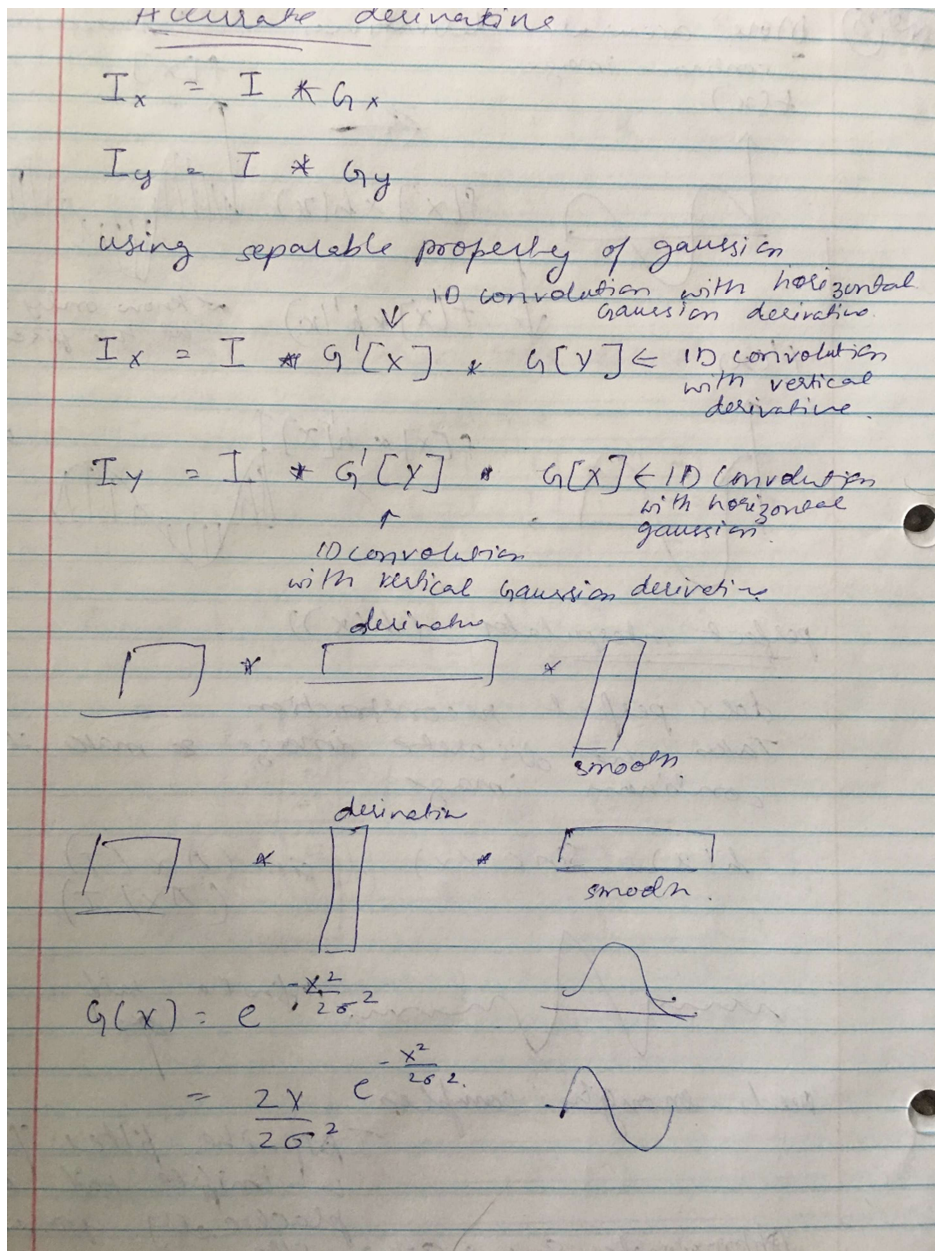 Accurate derivative
I_x = I * G_x
I_y = I * G_y
using separable property of gaussian
1D convolution with horizontal
Gaussian derivative.
↓
I_x = I * G'[X] * G[Y] ← 1D convolution
with vertical
derivative.
I_Y = I * G'[Y] * G[X] ← 1D Convolution
with horizontal
gaussian.
↑
1D convolution
with vertical Gaussian derivative
derivative
* *
smooth.
derivative
* *
smooth.
G(X) = e^{-x²/2σ²}
= 2X/2σ² e^{-x²/2σ².}